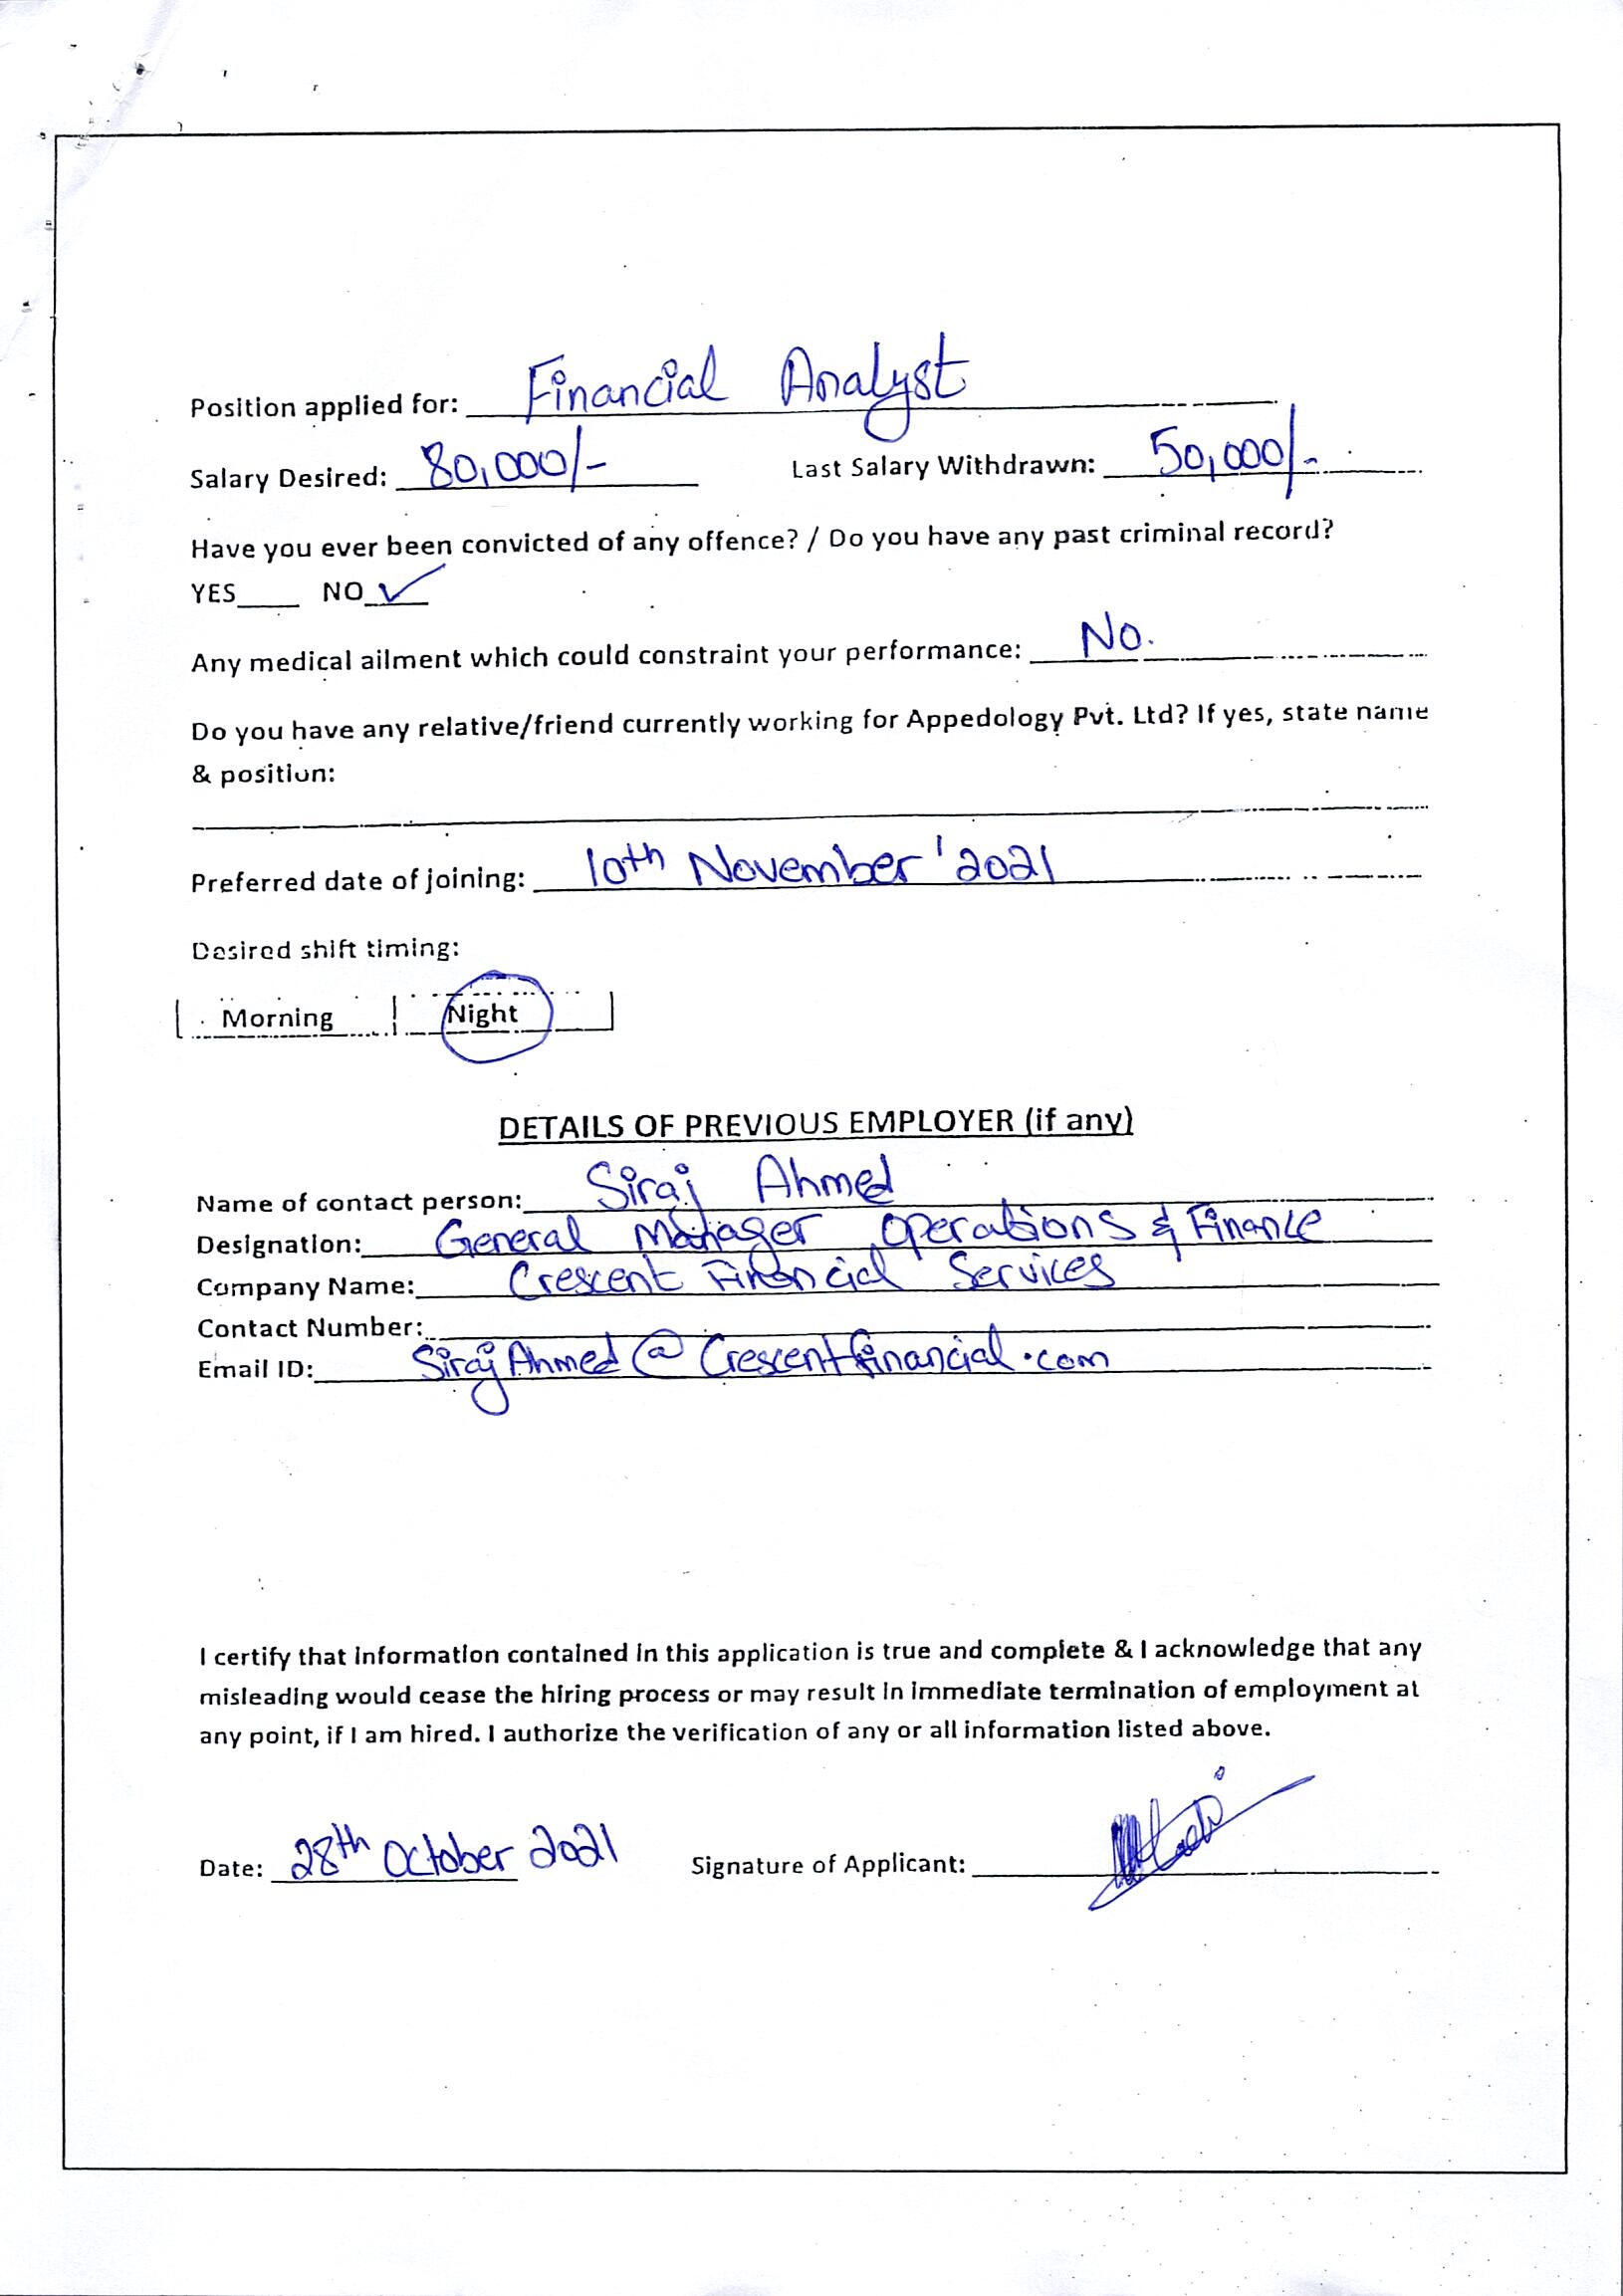 Position applied for: Financial Analyst
Salary Desired: 80,000/- Last Salary Withdrawn: 50,000/-
Have you ever been convicted of any offence? / Do you have any past criminal record?
YES____ NO ✓
Any medical ailment which could constraint your performance: No.
Do you have any relative/friend currently working for Appedology Pvt. Ltd? If yes, state name
& position:
Preferred date of joining: 10th November '2021
Desired shift timing:
Morning Night
DETAILS OF PREVIOUS EMPLOYER (if any)
Name of contact person: Siraj Ahmed
Designation: General Manager Operations & Finance
Company Name: Crescent Financial Services
Contact Number:
Email ID: SirajAhmed@Crescentfinancial.com
I certify that information contained in this application is true and complete & I acknowledge that any
misleading would cease the hiring process or may result in immediate termination of employment at
any point, if I am hired. I authorize the verification of any or all information listed above.
Date: 28th October 2021 Signature of Applicant: